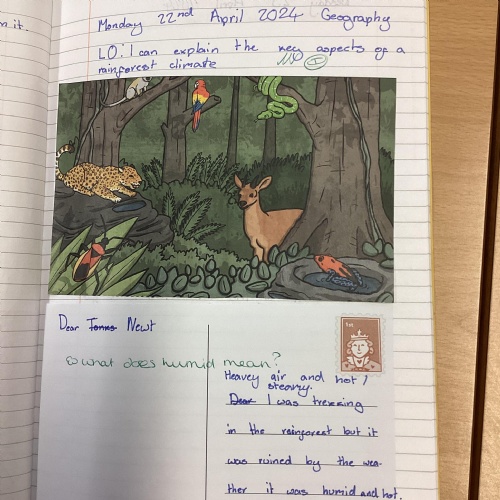 n it.
Monday 22nd April 2024 Geography
LO: I can explain the key aspects of a
rainforest climate
Dear Newt
what does humid mean?
1st
Heavey air and hot /
steamy.
Dear I was treking
in the rainforest but it
was ruined by the wea-
ther it was humid and hot.